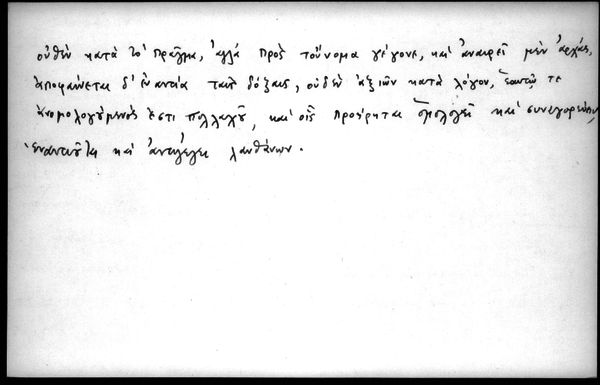 οὐθὲν κατὰ τὸ πρᾶγμα, ἀλλὰ πρὸς τοὔνομα γέγονε, καὶ ἀναιρεῖ μὲν ἀρχάς,
ἀποφαίνεται δ' ἐναντία ταῖς δόξαις, οὐδὲν ἀξιῶν κατὰ λόγον, ἑαυτῷ τε
ἀνομολογούμενός ἐστι πολλαχοῦ, καὶ οἷς προῄρηται ὁμολογεῖν καὶ συνηγορεῖν,
ἐναντιοῦται καὶ ἀντιλέγει λανθάνων.